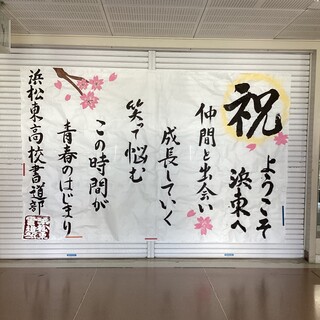 祝
ようこそ
浜東へ
仲間と出会い
成長していく
笑って悩む
この時間が
青春のはじまり
浜松東高校書道部